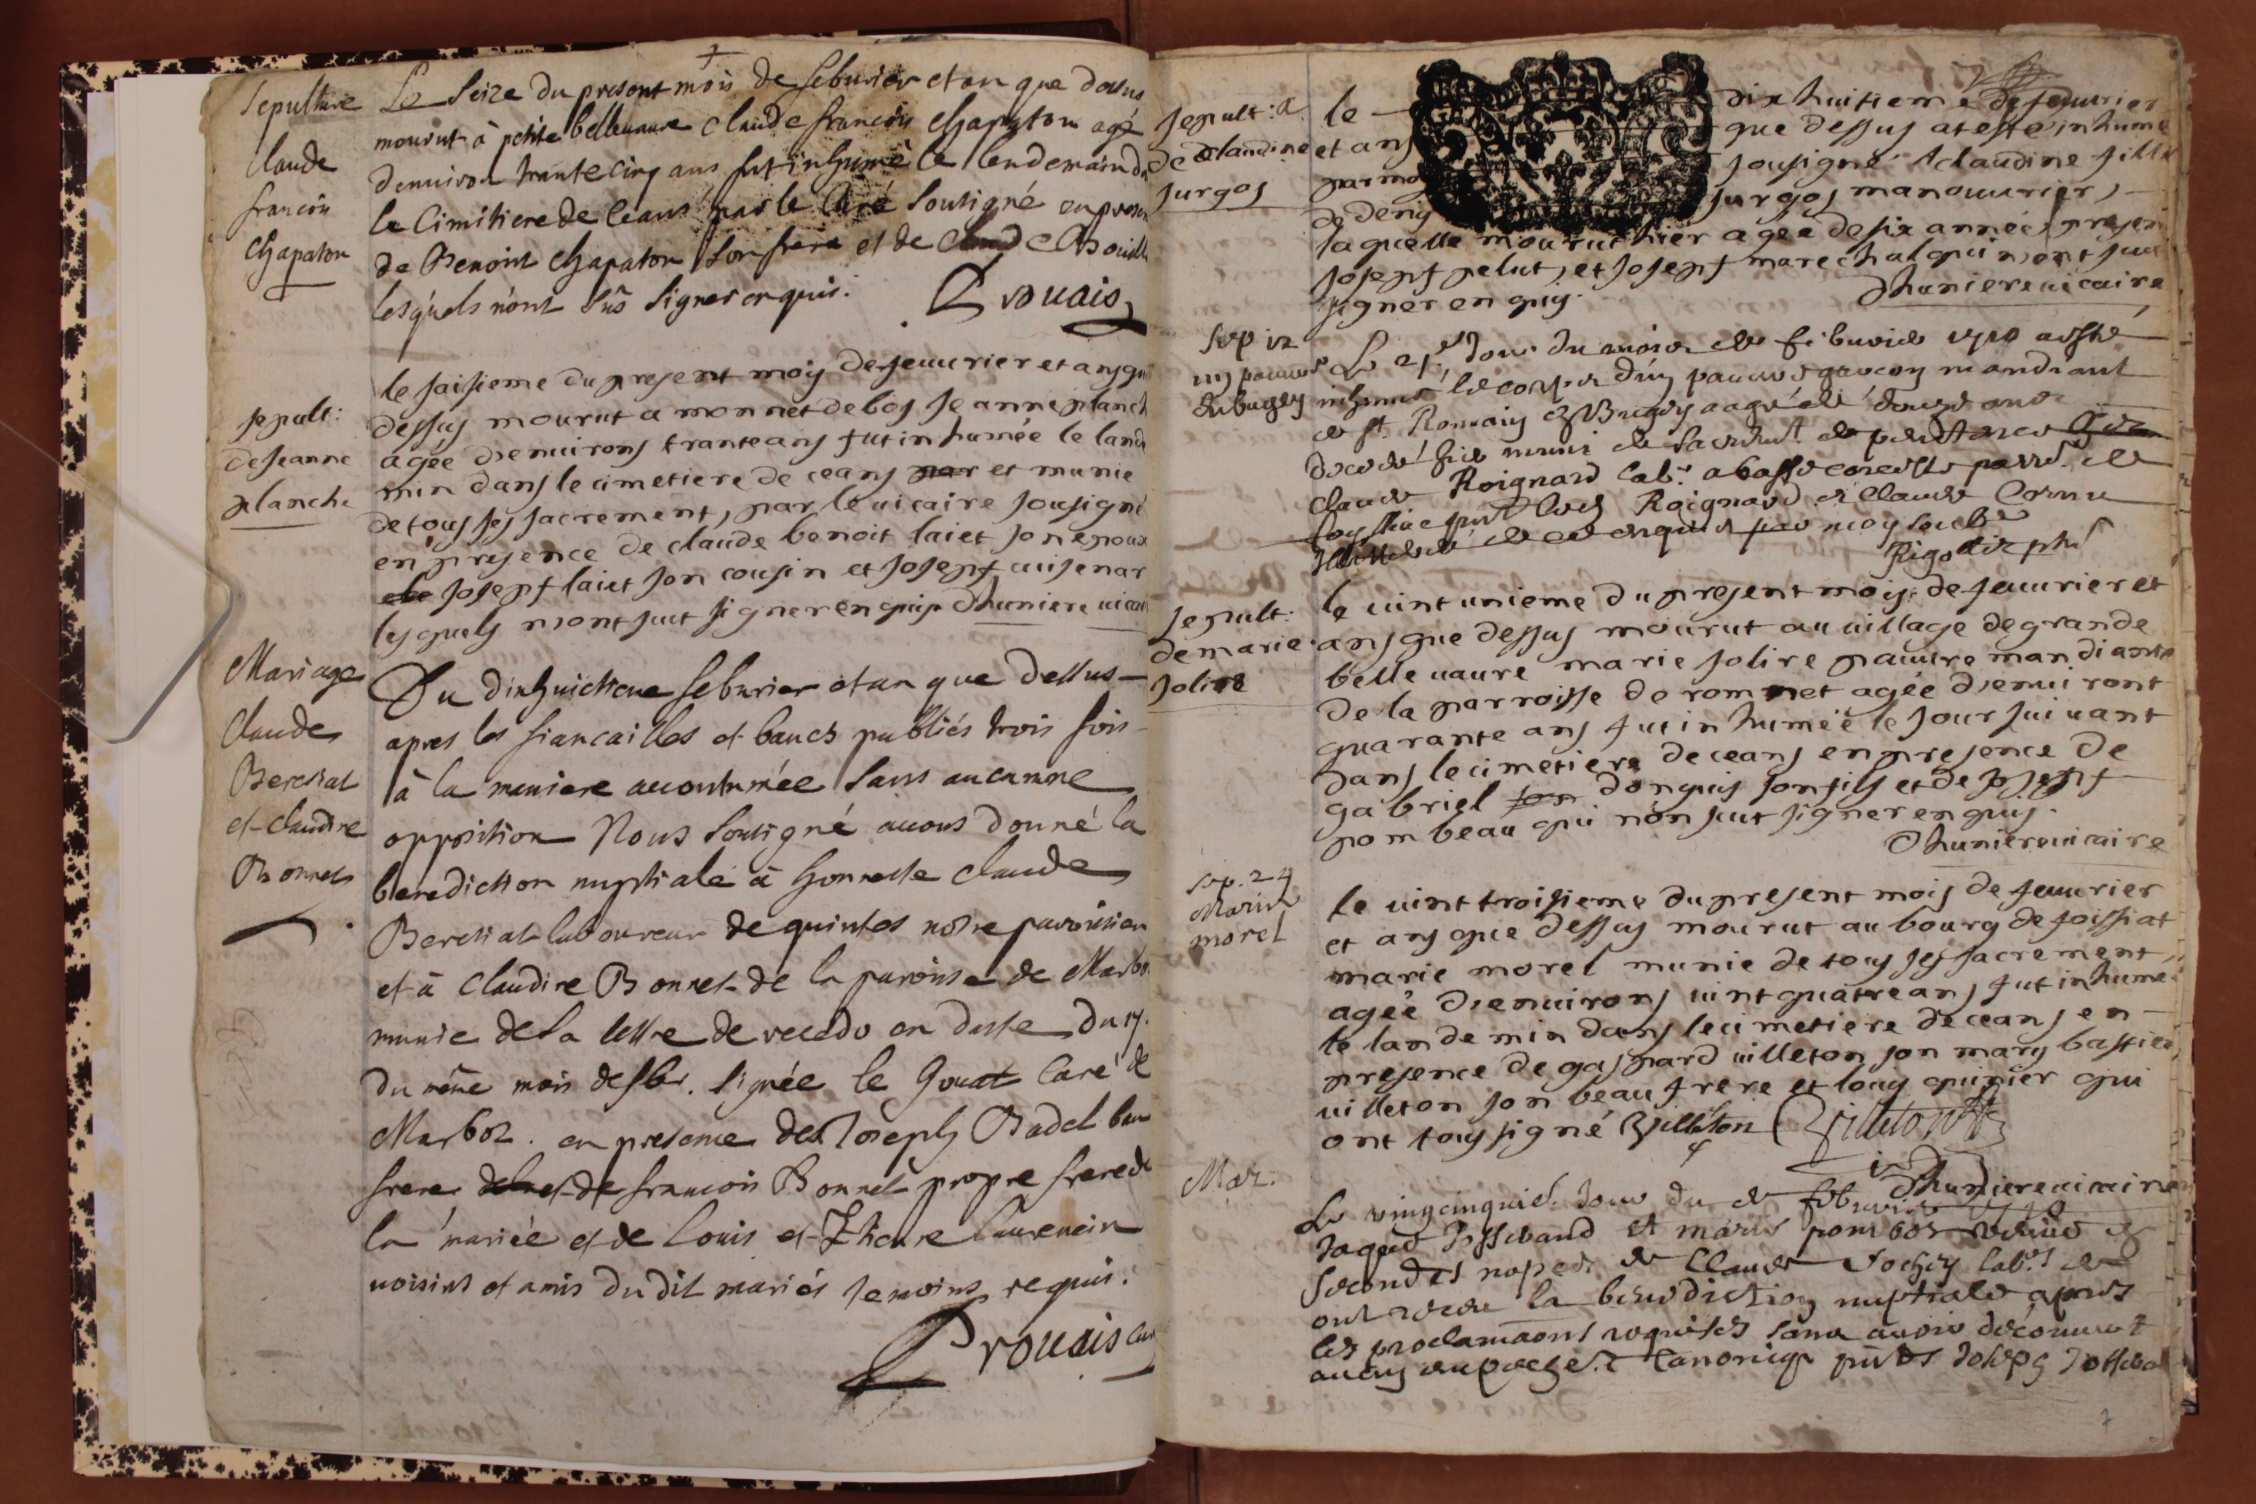 Sepulture
Claude
francois
Chapaton
Le Seize du present mois de feburier et an que dessus
mourut à petite bellevaure Claude francois Chapaton agé
denuiron trante cinq ans fut inhumé le lendemain da
le Cimitiere de ceans par le Curé Soutigné en presen
de Benoit Chapaton son frere et de
lesquels n'ont Sûs Signer enquis. Provais
sepult:
de Jeanne
planche
le saisieme du present moy de feuurier et ans que
dessus mourut a monnet de bos Jeanne planch
agée denuirons trante ans fut inhumée le lande
min dans le cimetiere de ceans par et munie
de tous ses sacrement, par le uicaire sousigné
en presence de claude benoit laiet son epoux
de Josepf laiet son cousin et Josepf uisenar
lesquels n'ont sut signer enquis Dhuniere uicai
Mariage
Claude
Beretiat
et Claudine
Bonnet
Du dixhuictieme feburier et an que dessus
apres les fiancailles et bancs publiés trois fois
à la maniere accoutumée sans aucunne
opposition Nous soutigné auons donné la
benediction nuptiale à honneste Claude
Beretiat laboureur de quintes notre paroissien
et à Claudine Bonnet de la paroisse de Marbo
munie de la lettre de recedo en datte du 17.
du même mois de fbr. signée le Gouat Curé de
Marboz. en presence de Joseph Badel beau
frere et de francois Bonnet propre frere de
la mariée et de Louis et Ethiene Laurencin
uoisins et amis du dit mariés temoins requis.
Provais Curé
sepult: a
de Claudine
surgos
le dixhuitieme de feuurier
et ans que dessus at esté inhume
par moy sousigné claudine fille
de denis surgos manouurier,
laquelle mourut hier agée de six année, presen
Josepf pelut, et Josepf marechal qui n'ont sut
signer enquis. Dhuniere uicaire
Sep 12
un pauure
du bugey
Le 21e Jour du mois de feburier 1710 a esté
inhumé le corps d'un pauure garcon mandiant
de st Romain en Bugey aagé de douze ans
decedé hier muni du sacrement de penitence
Claude Roignard lab.r a basse
Roignard et Claude Cornu
de ce enquis par moy soub.né
Rigollier
sepult:
de marie
Jolire
le uint unieme du present mois de feuurier et
ans que dessus mourut au uillage de grande
belle uaure marie Jolire pauure mandiante
de la parroisse de rommet agée denuiront
quarante ans fut inhumée le jour suiuant
dans le cimetiere de ceans en presence de
gabriel son donquis son fils et de Josepf
pombeau qui non sut signer enquis.
Dhuniere uicaire
Sep. 24
Marie
morel
le uint troisieme du present mois de feuurier
et ans que dessus mourut au bourg de foissiat
marie morel munie de tous ses sacrement,
agée denuirons uint quatre ans, fut inhume
le landemin dans le cimetiere de ceans en
presence de gaspard uilleton son mary bastien
uilleton son beau frere et louy quinier qui
ont tous signé Villeton Villeton
Dhuniere uicaire
Mar.
Le vingcinquie. Jour du de feburier 1710
Jaque Josserand et marie pombos veuue en
secondes nopces de Claude Vochey lab.r de
ont receu la benediction nuptiale apres
les proclamaons requises sans auoir decouuert
aucun empeche.t Canonique pnts Joseph Josseran
7